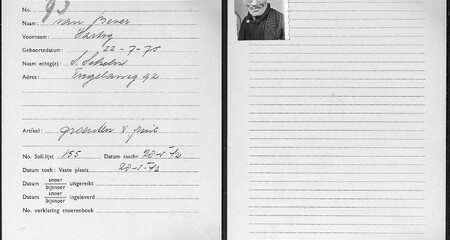 No. 93
Naam: van Bever
Voornaam: Hartog
Geboortedatum: 22-7-75
Naam echtg(e):
Adres: 92
Artikel: groenten & fruit
No. Soll.lijst 155 Datum inschr. 28-5-42
Datum toek: Vaste plaats 28-5-42
Datum snoer bijsnoer uitgereikt
Datum snoer bijsnoer ingeleverd
No. verklaring snoerenboek